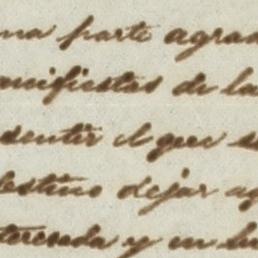 na parte agrad
anifiestas de la
sentir el que s
destino dejar ag
teresada y en su